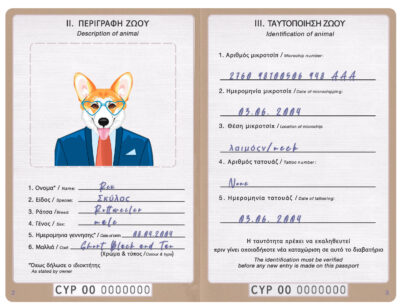 II. ΠΕΡΙΓΡΑΦΗ ΖΩΟΥ
Description of animal
1. Ονομα* / Name: Rex
2. Είδος / Species: Σκύλος
3. Ράτσα / Breed: Rottweiler
4. Γένος / Sex: male
5. Ημερομηνία γεννησης* / Date of birth: 08.09.2009
6. Μαλλιά / Coat: Short Black and Tan
(Χρώμα & τύπος / Colour & type)
*Όπως δήλωσε ο ιδιοκτήτης
As stated by owner
CYP 00 0000000
2
III. ΤΑΥΤΟΠΟΙΗΣΗ ΖΩΟΥ
Identification of animal
1. Αριθμός μικροτσίπ / Microchip number:
AAA
2. Ημερομηνία μικροτσίπ / Date of microchipping:
03.06. 2009
3. Θέση μικροτσίπ / Location of microchip:
λαιμός/neck
4. Αριθμός τατουάζ / Tattoo number:
None
5. Ημερομηνία τατουάζ / Date of tattooing:
03.06. 2009
Η ταυτότητα πρέπει να εκαληθευτεί
πριν γίνει οποιαδήποτε νέα καταχώριση σε αυτό το διαβατήριο
The identification must be verified
before any new entry is made on this passport
CYP 00 0000000
3